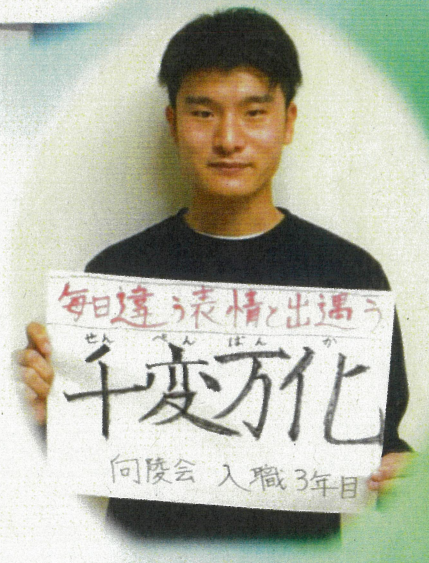 毎日違う表情と出遇う
せんぺんばんか
千変万化
向陵会 入職3年目